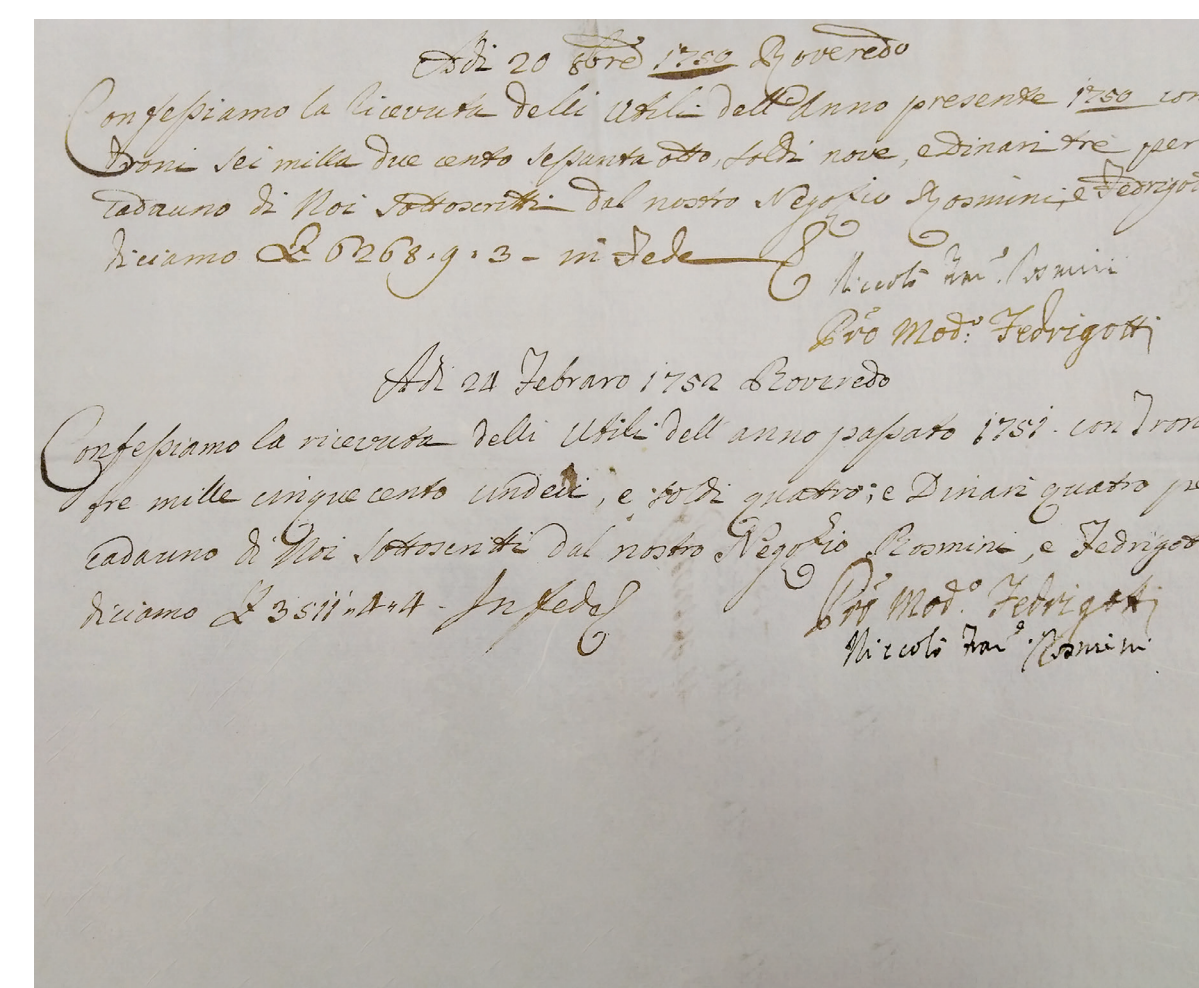 Adi 20 8bre 1750 Roveredo
Confessiamo la ricevuta delli Utili dell'Anno presente 1750 con
troni sei milla due cento sessanta otto, soldi nove, e dinari tre per
cadauno di Noi Sottoscritti dal nostro Negozio Rosmini, e Fedrigot
diciamo £ 6268.9.3 - in Fede
Niccolò Fran.o Rosmini
Pro Mod.o Fedrigotti
Adi 24 Febraro 1752 Roveredo
Confessiamo la ricevuta delli Utili dell'anno passato 1751. con Tron
tre mille cinque cento undeci, e soldi quatro; e Dinari quatro pe
cadauno di Noi Sottoscritti dal nostro Negozio Rosmini, e Fedrigot
diciamo £ 3511.4.4. In fede
Pro Mod.o Fedrigotti
Niccolò Fran.o Rosmini